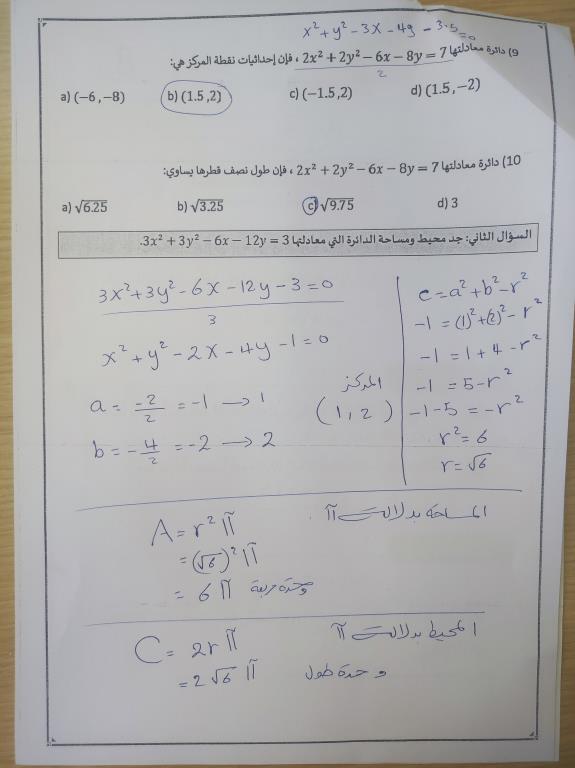 x² + y² - 3x - 4y - 3.5 = 0
9) دائرة معادلتها 2x² + 2y² − 6x − 8y = 7 ، فإن إحداثيات نقطة المركز هي:
2
a) (−6, −8) b) (1.5, 2) c) (−1.5, 2) d) (1.5, −2)
10) دائرة معادلتها 2x² + 2y² − 6x − 8y = 7 ، فإن طول نصف قطرها يساوي:
a) √6.25 b) √3.25 c) √9.75 d) 3
السؤال الثاني: جد محيط ومساحة الدائرة التي معادلتها 3x² + 3y² − 6x − 12y = 3.
3x² + 3y² - 6x - 12y - 3 = 0
3
x² + y² - 2x - 4y - 1 = 0
a = -2/2 = -1 → 1
b = -4/2 = -2 → 2
المركز
(1, 2)
c = a² + b² - r²
-1 = (1)² + (2)² - r²
-1 = 1 + 4 - r²
-1 = 5 - r²
-1 - 5 = -r²
r² = 6
r = √6
المساحة بدلالة π
A = r² π
= (√6)² π
= 6 π وحدة مربعة
المحيط بدلالة π
C = 2r π
= 2√6 π وحدة طول